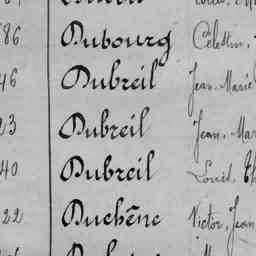 86 Dubourg Célestin
46 Dubreil Jean Marie
23 Dubreil Jean, Mar
40 Dubreil Louis, Th
22 Duchêne Victor, Jean